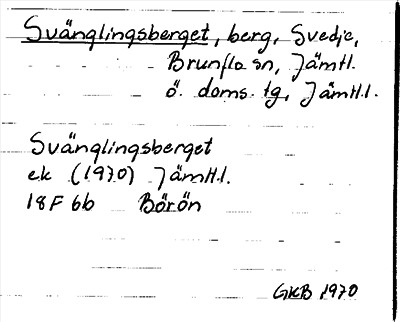 Svänglingsberget, berg, Svedje,
Brunflo sn, Jämtl.
ö. doms. tg, Jämtl.l.
Svänglingsberget
ek (1970) Jämtl.l.
18F 6b Börön
GKB 1970